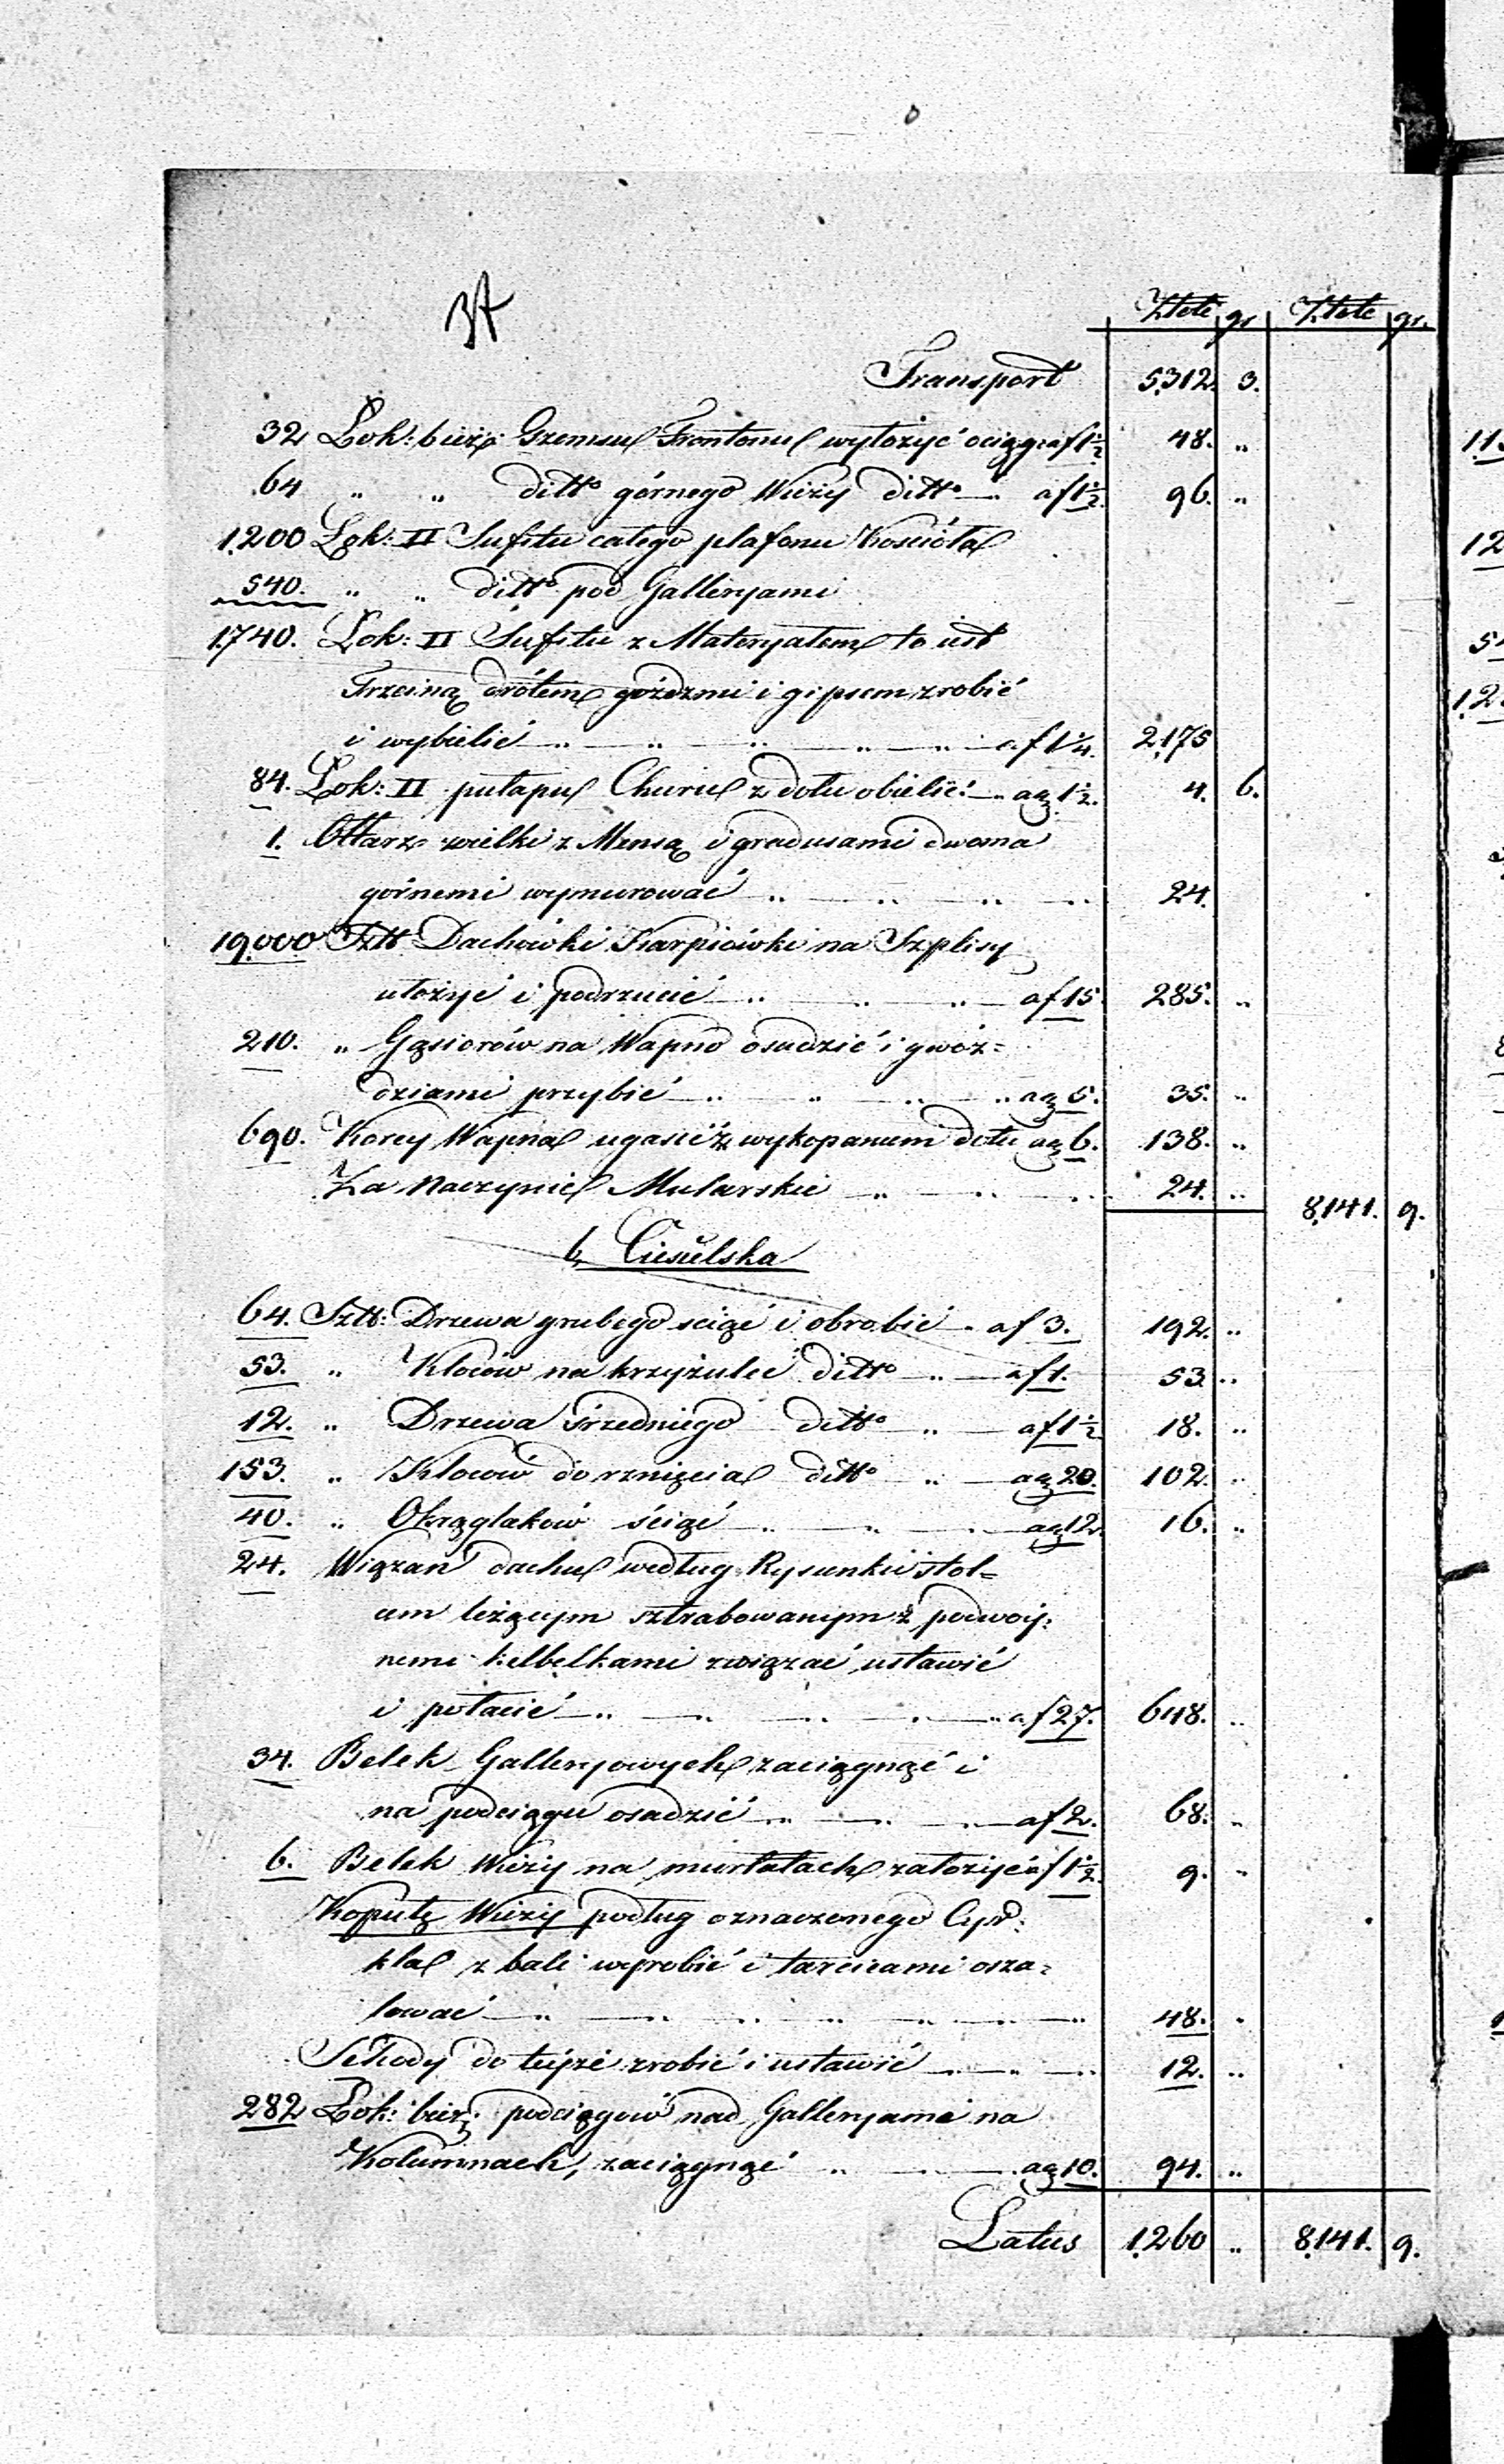 34
Złote gr Złote gr.
Transport 5312. 3.
32 Łok: bież: Gzemsu Frontonu wyłożyć ociągn af 1½ 48. "
64 " " ditto górnego Wieży ditto " af 1½. 96. "
1.200 Łok: II Sufitu całego plafonu Kościoła
540. " " ditto pod Galleryami
1.740. Łok: II Sufitu z Materyałem to iest
Trzciną drótem goźdzmi i gipsem zrobić
i wybielić " " " " " af 1¼. 2,175
84. Łok: II pułapu Churu z dołu obielić " ag 1½. 4. 6.
1. Ołtarz wielki z Mensą i gradusami dwoma
górnemi wymurować " " " " 24.
19.000 Sztt Dachówki Karpiówki na Szplisy
ułożyć i podrzucić " " " af 15. 285. "
210. " Gąsiorów na Wapno osadzić i gwóź=
dziami przybić " " " " ag 5. 35. "
690. Korcy Wapna ugasić z wykopaniem dołu ag 6. 138. "
Za Naczynie Mularskie " " " 24. "
8,141. 9.
b, Ciesielska
64. Sztt: Drzewa grubego ściąć i obrobić " af 3. 192. "
53. " Kloców na krzyżulce ditto " af 1. 53 "
12. " Drzewa śrzedniego ditto " af 1½ 18. "
153. " Kloców do rznięcia ditto " ag 20. 102. "
40. " Okrąglaków ściąć " " " ag 12. 16. "
24. Wiązań dachu według Rysunku stol=
cem leżącym sztrabowanym z podwoy:
nemi kelbelkami związać ustawić
i połacić " " " " " af 27. 648. "
34. Belek Galleryowych zaciągnąć i
na podciągu osadzić " " " af 2. 68. "
6. Belek Wieży na murłatach założyć af 1½. 9. "
Kopułę Wieży podług oznaczonego Cyr:
kla z bali wyrobić i tarcicami osza=
lować " " " " " " 48. "
Schody do teyże zrobić i ustawić " " " 12. "
282 Łok: bież: podciągów nad Galleryami na
Kolumnach, zaciągnąć " " ag 10. 94. "
Latus 1,260 " 8,141. 9.